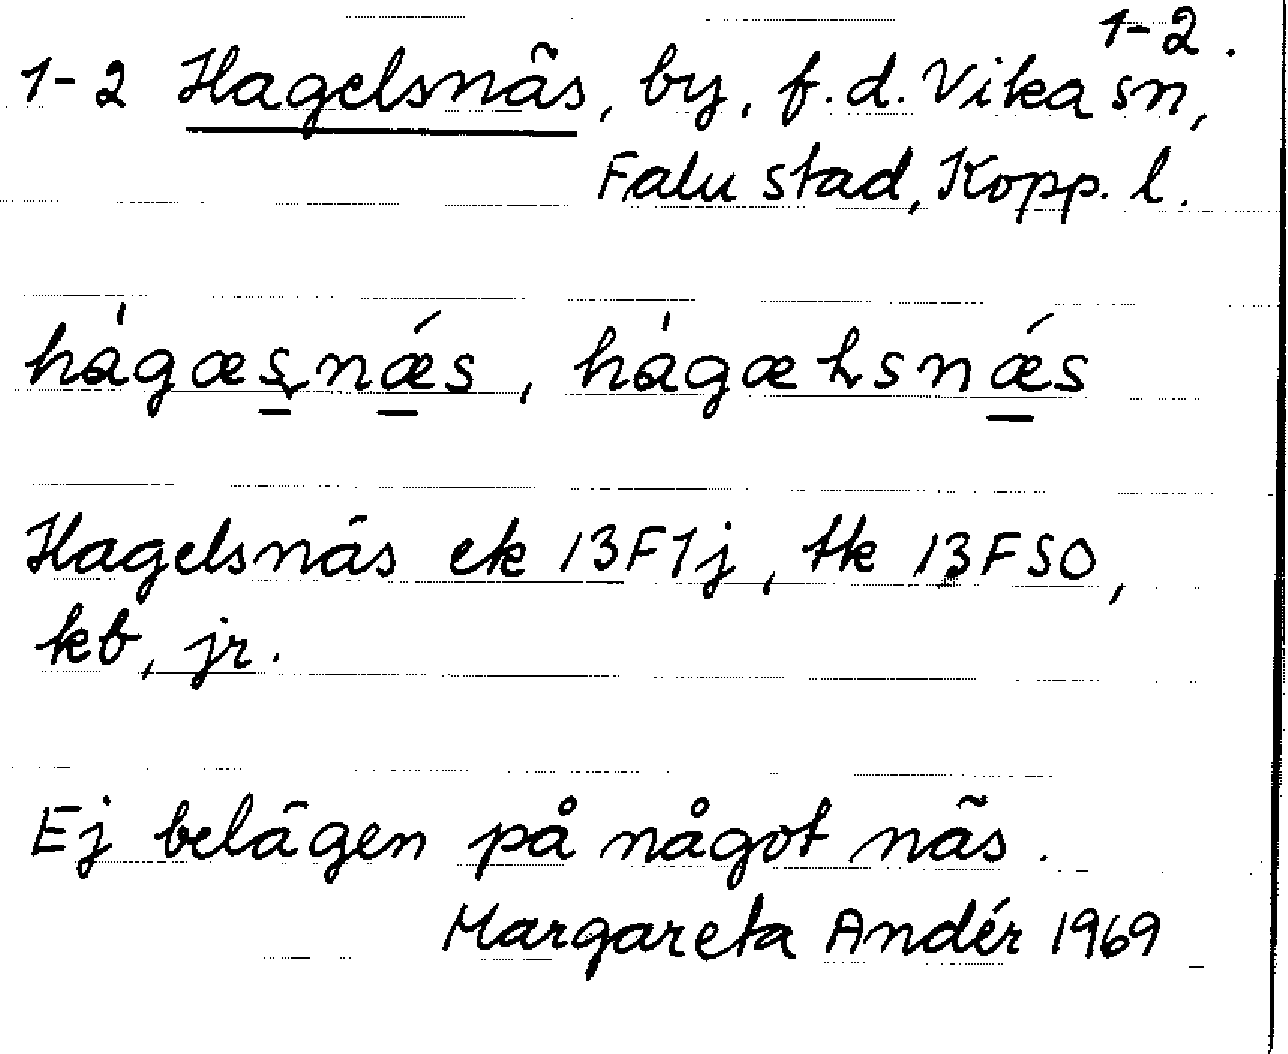 1-2.
1-2 Hagelsnäs, by, f.d. Vika sn,
Falu stad, Kopp. l.
hágæsnǽs, hágæLsnǽs
Hagelsnäs ek 13F1j, tk 13FSO,
kb, jr.
Ej belägen på något näs.
Margareta Andér 1969